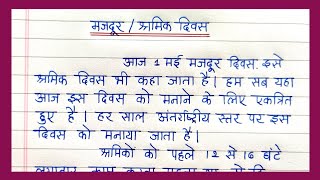 मजदूर / श्रमिक दिवस
आज 1 मई मजदूर दिवस इसे
श्रमिक दिवस भी कहा जाता है। हम सब यहा
आज इस दिवस को मनाने के लिए एकत्रित
हुए है। हर साल अंतर्राष्ट्रीय स्तर पर इस
दिवस को मनाया जाता है।
श्रमिकों को पहले 12 से 16 घंटे
लगातार काम करना